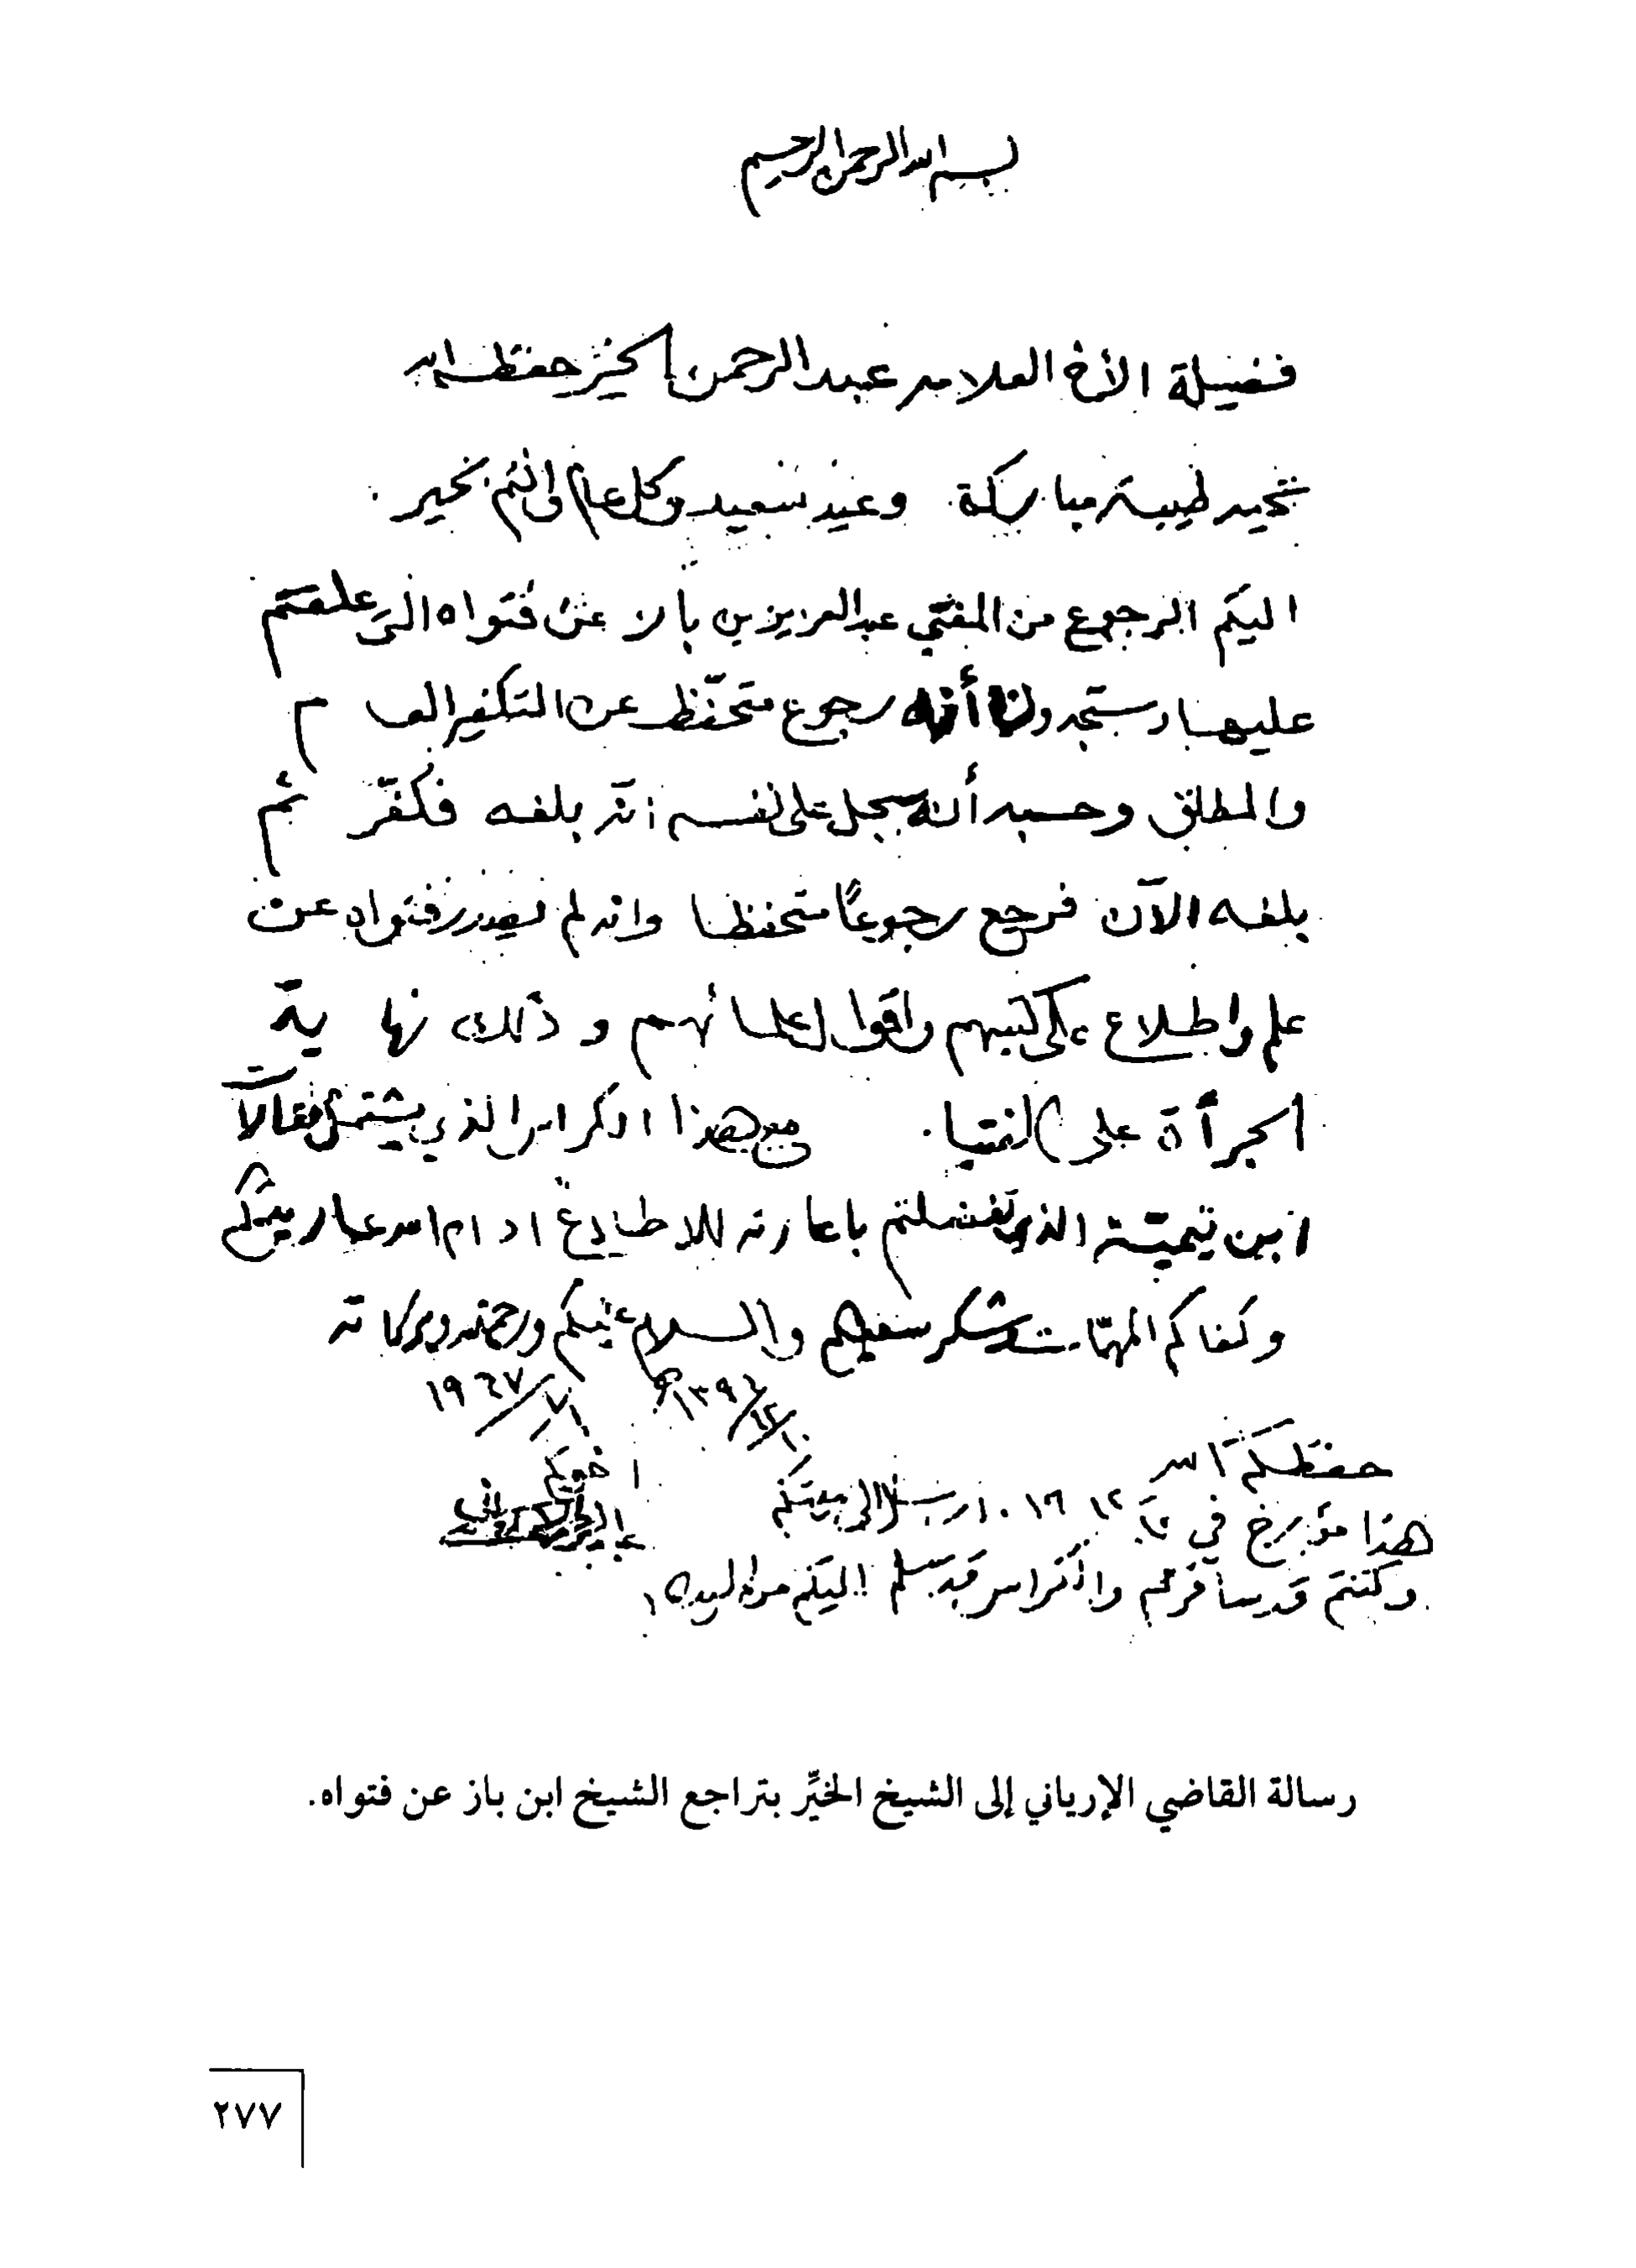 بسم الله الرحمن الرحيم
فضيلة الأخ العلامه عبد الرحمن الخيّر حفظه الله
تحيه طيبه مباركة وعيد سعيد وكل عام وانتم بخير .
اليكم الرجوع من المفتي عبد العزيز بن باز عن فتواه التي علقتم
عليها وستجدون أنه رجوع متحفّظ عن التكفير العام
والمطلق وحسبه أنه سجل على نفسه انّه بلغه فكفّر ثم
بلغه الآن فرجع رجوعاً متحفظا وانه لم يصدر فتواه عن
علم واطلاع على كتبهم واقوال علمائهم وذلك نهاية
الجرأة على الفتيا . مع هذا الكراس الذي يشتمل مقالاً
ابن تيميّة الذي تفضلتم باعارته للاطلاع ادام الله عمار بيتكم
وكفاكم المهمّات وشكر سعيكم والسلام عليكم ورحمته وبركاته
١٠/١٢/١٣٩٦هـ ١/٧/١٩٦٧
حفظكم الله اخوكم
هذا مؤرخ في ١٦ ارسل الى بيتكم
وكنتم قد سافرتم والكراس قد سلم اليكم
رسالة القاضي الإرياني إلى الشيخ الخيِّر بتراجع الشيخ ابن باز عن فتواه.
٢٧٧